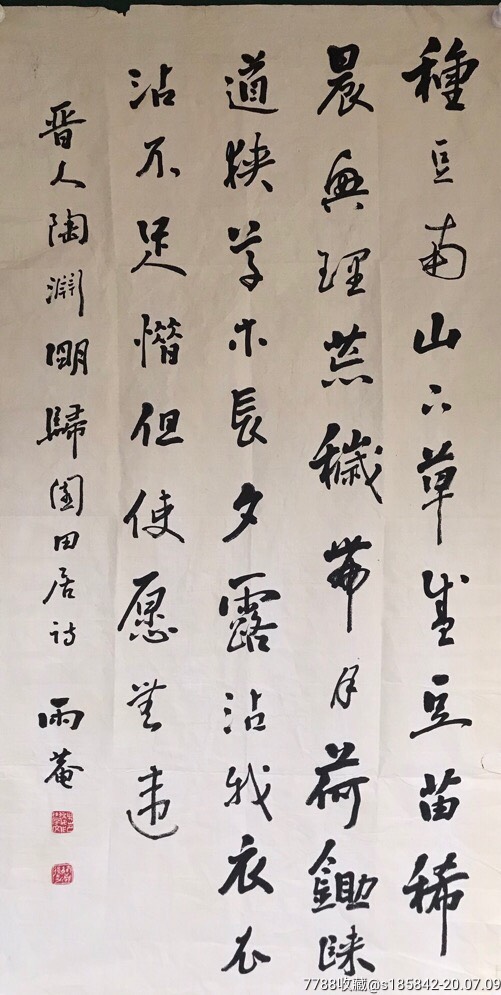 種豆南山下草盛豆苗稀
晨興理荒穢帶月荷鋤歸
道狹草木長夕露沾我衣衣
沾不足惜但使愿無違
晋人陶淵明歸園田居詩 雨菴
7788收藏@s185842-20.07.09